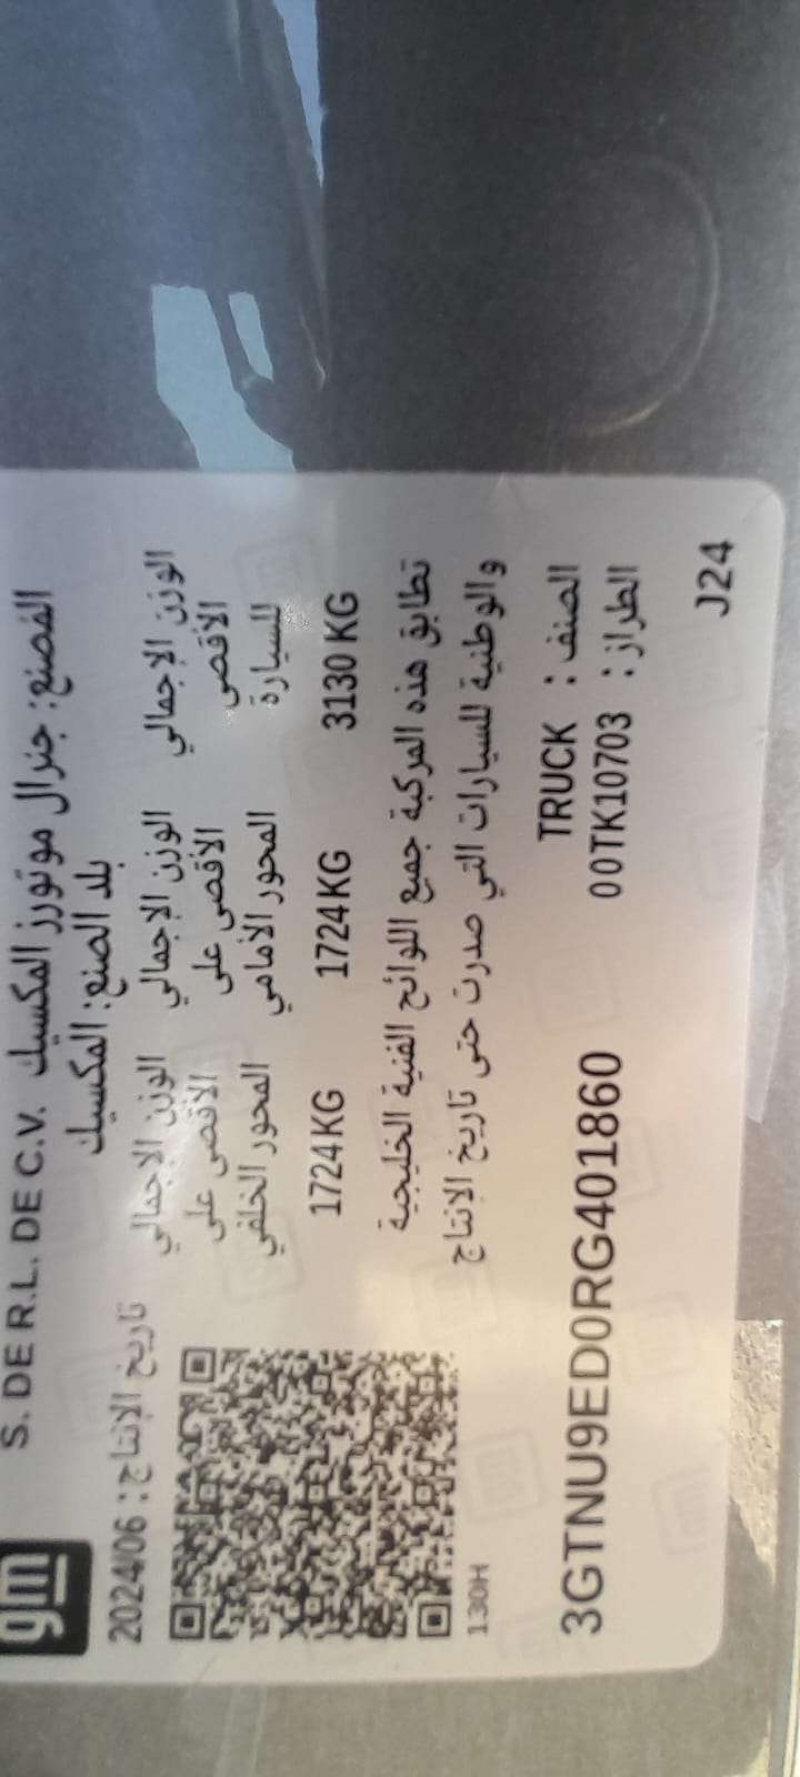 gm
S. DE R.L. DE C.V. المصنع: جنرال موتورز المكسيك
بلد الصنع: المكسيك
تاريخ الإنتاج: 2024/06
الوزن الإجمالي الأقصى للسيارة
3130 KG
الوزن الإجمالي الأقصى على المحور الأمامي
1724 KG
الوزن الإجمالي الأقصى على المحور الخلفي
1724 KG
تطابق هذه المركبة جميع اللوائح الفنية الخليجية
والوطنية للسيارات التي صدرت حتى تاريخ الإنتاج
130H
الصنف : TRUCK
3GTNU9ED0RG401860
الطراز : 00TK10703
J24